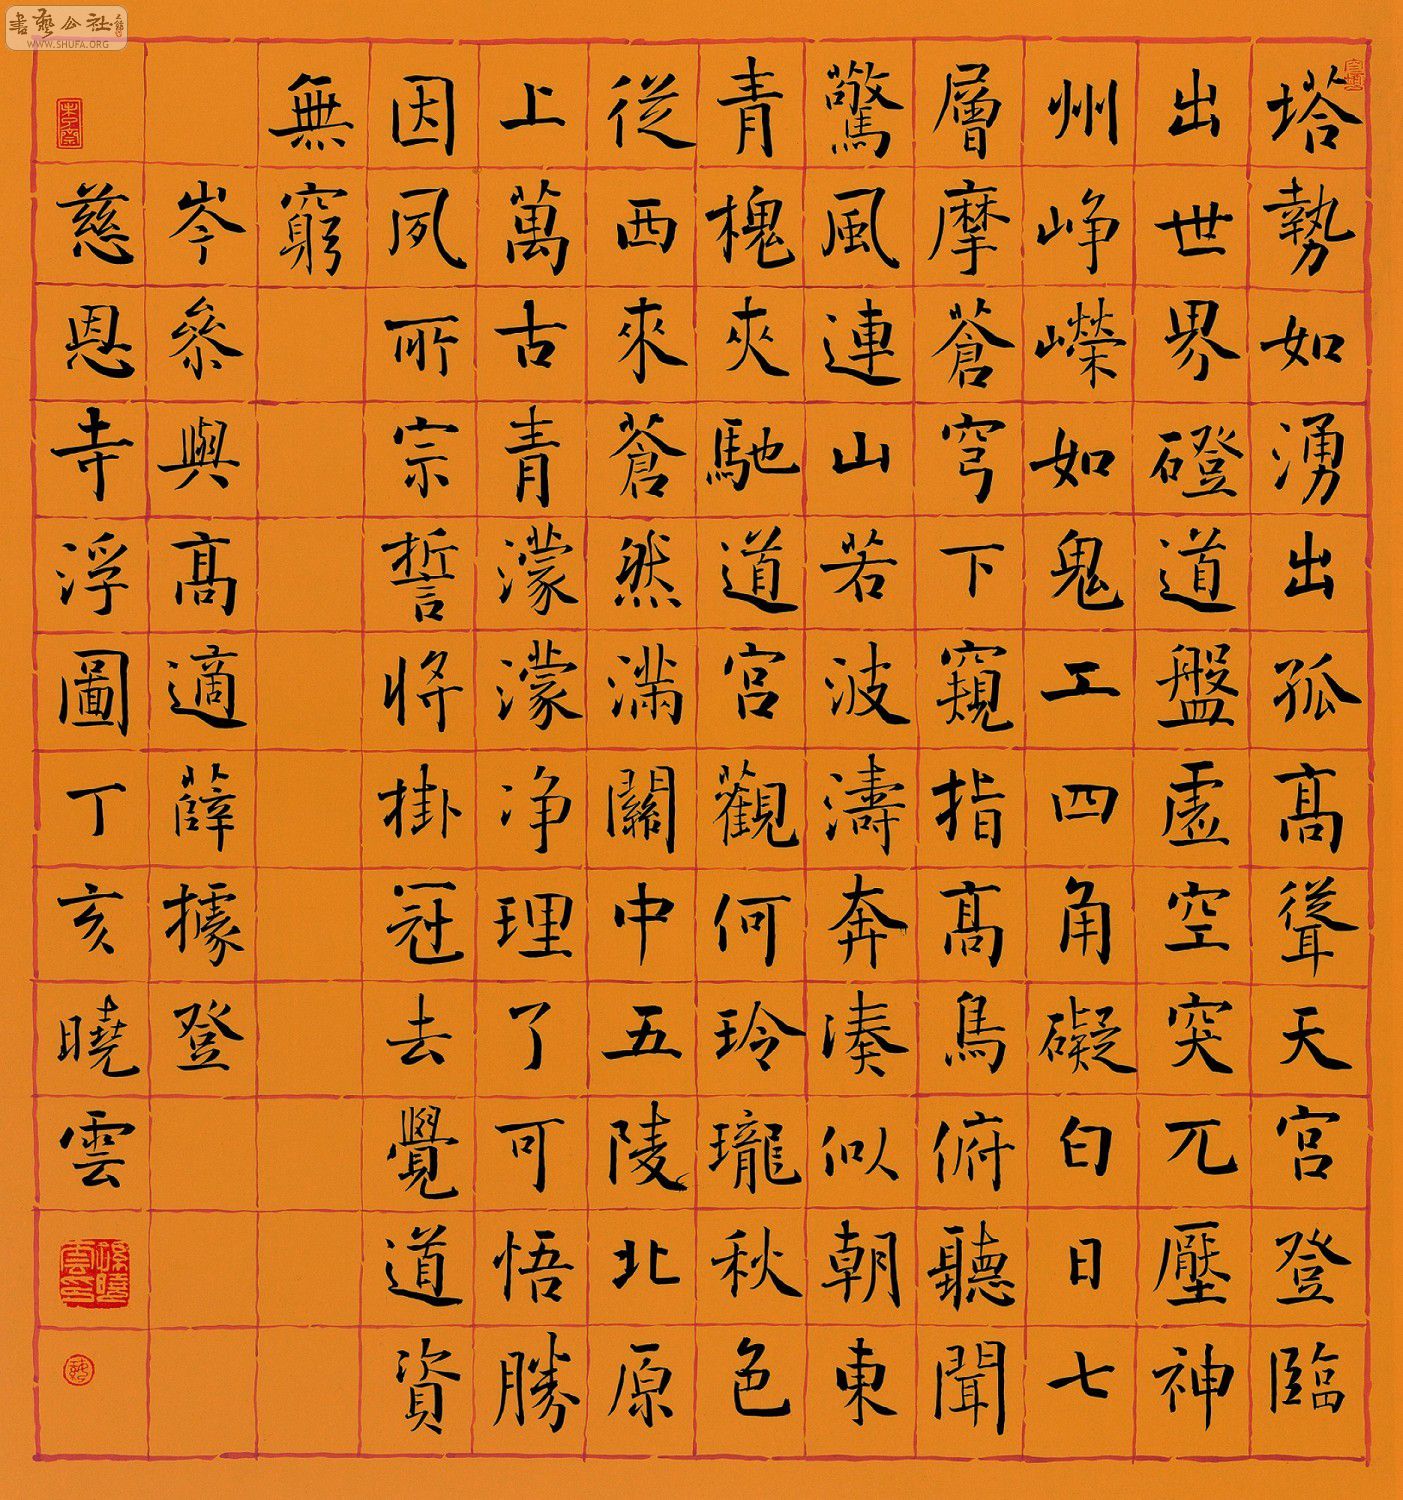 書藝公社
WWW.SHUFA.ORG
塔勢如湧出孤高聳天宮登臨
出世界磴道盤虛空突兀壓神
州崢嶸如鬼工四角礙白日七
層摩蒼穹下窺指高鳥俯聽聞
驚風連山若波濤奔湊似朝東
青槐夾馳道宮觀何玲瓏秋色
從西來蒼然滿關中五陵北原
上萬古青濛濛净理了可悟勝
因夙所宗誓將掛冠去覺道資
無窮
岑參與高適薛據登
慈恩寺浮圖丁亥曉雲
孫曉雲印